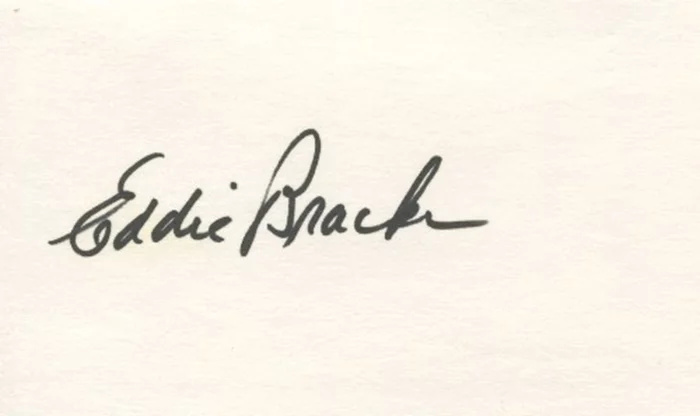 Eddie Bracken